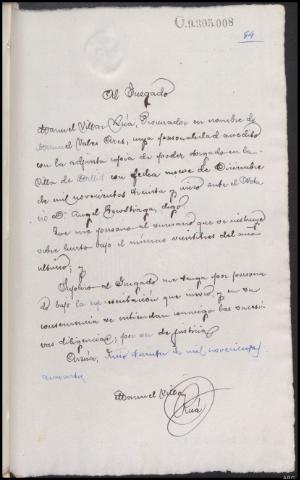 O.9.305.008
84
Al Juzgado
Manuel Villar Rúa, Procurador en nombre de
Manuel Vales Pires, cuya personalidad acredito
con la adjunta copia de poder otorgado en la
Villa de con fecha nueve de Diciembre
de mil novecientos treinta y nueve ante el Nota-
rio D. Angel digo:
Que me persono al sumario que se instruye
sobre hurto bajo el número veintitres del año
último; y
Suplico al Juzgado me tenga por persona-
do bajo la representación que invoco y en su
consecuencia se entiendan conmigo las sucesi-
vas diligencias; por ser de justicia
Arzúa, treinta de mil novecientos
cuarenta
Manuel Villar
Rúa